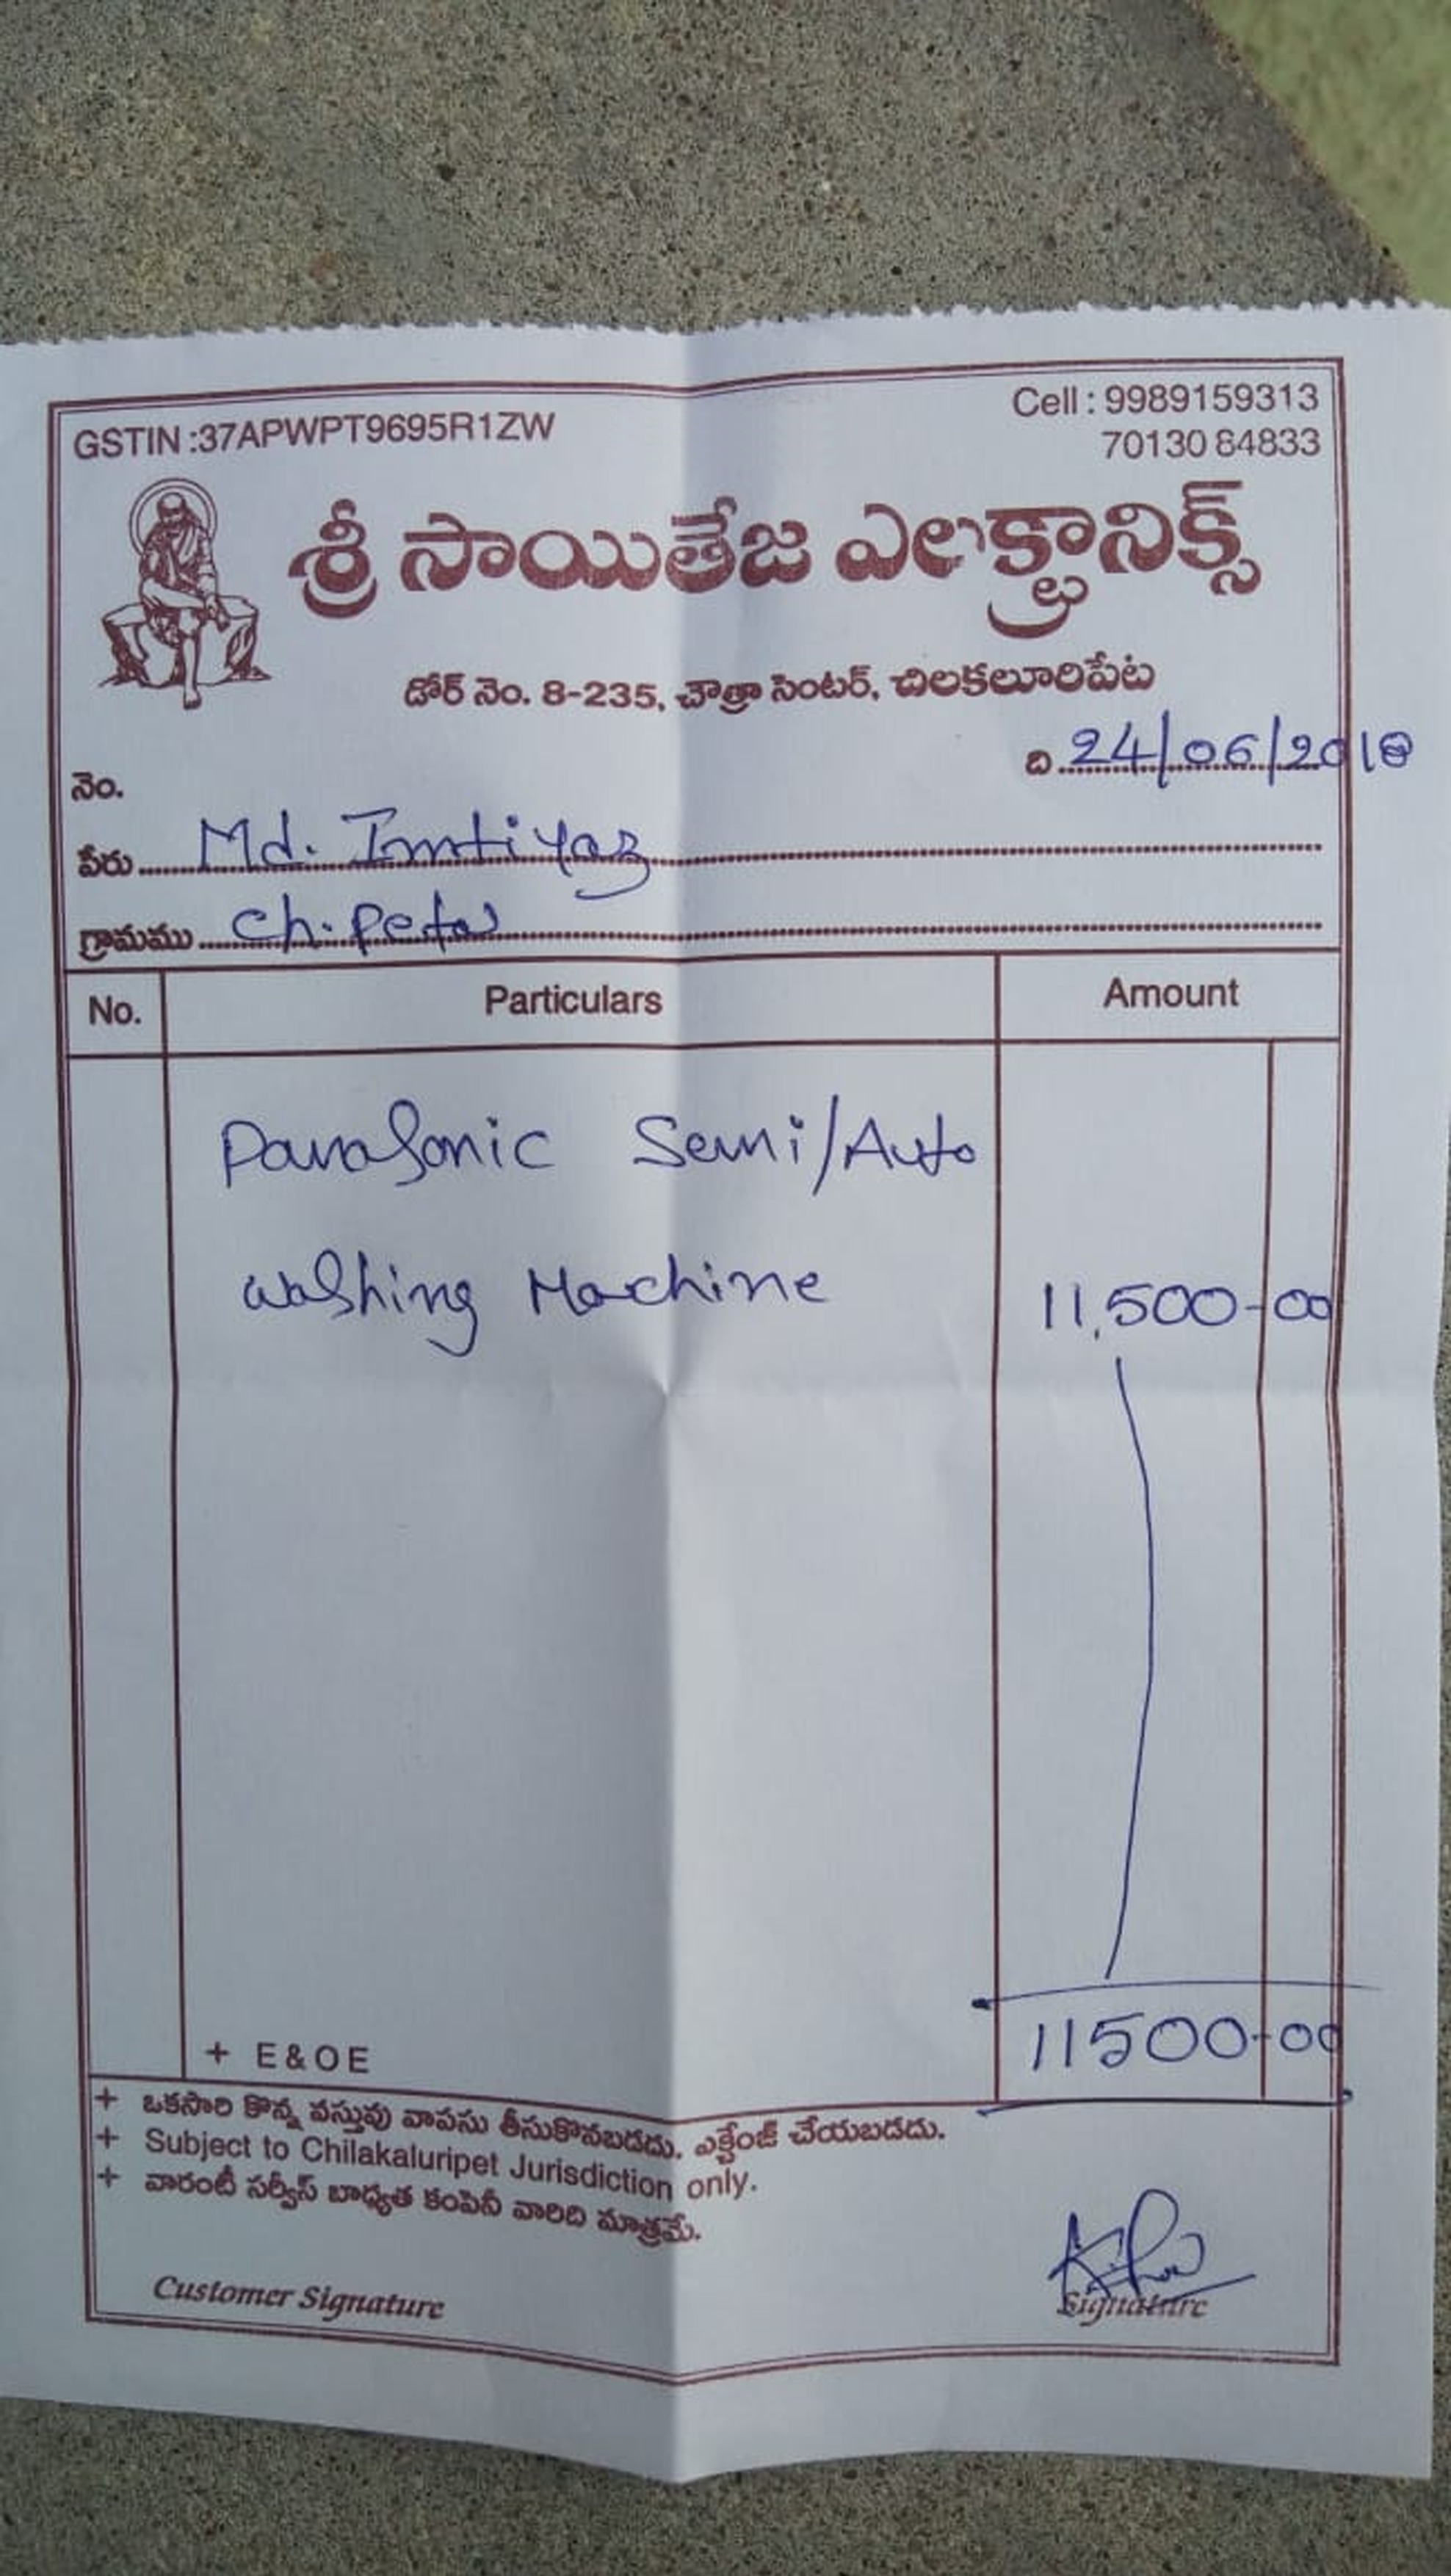 GSTIN :37APWPT9695R1ZW
Cell : 9989159313
70130 84833
శ్రీ సాయితేజ ఎలక్ట్రానిక్స్
డోర్ నెం. 8-235, చౌత్రా సెంటర్, చిలకలూరిపేట
ది 24/06/2018
నెం.
పేరు Md. Imtiyaz
గ్రామము Ch. Peta
No. Particulars Amount
Panasonic Semi/Auto
Washing Machine 11,500-00
11500-00
+ E & O E
+ ఒకసారి కొన్న వస్తువు వాపసు తీసుకొనబడదు. ఎక్ఛేంజ్ చేయబడదు.
+ Subject to Chilakaluripet Jurisdiction only.
+ వారంటీ సర్వీస్ బాధ్యత కంపెనీ వారిది మాత్రమే.
Customer Signature Signature